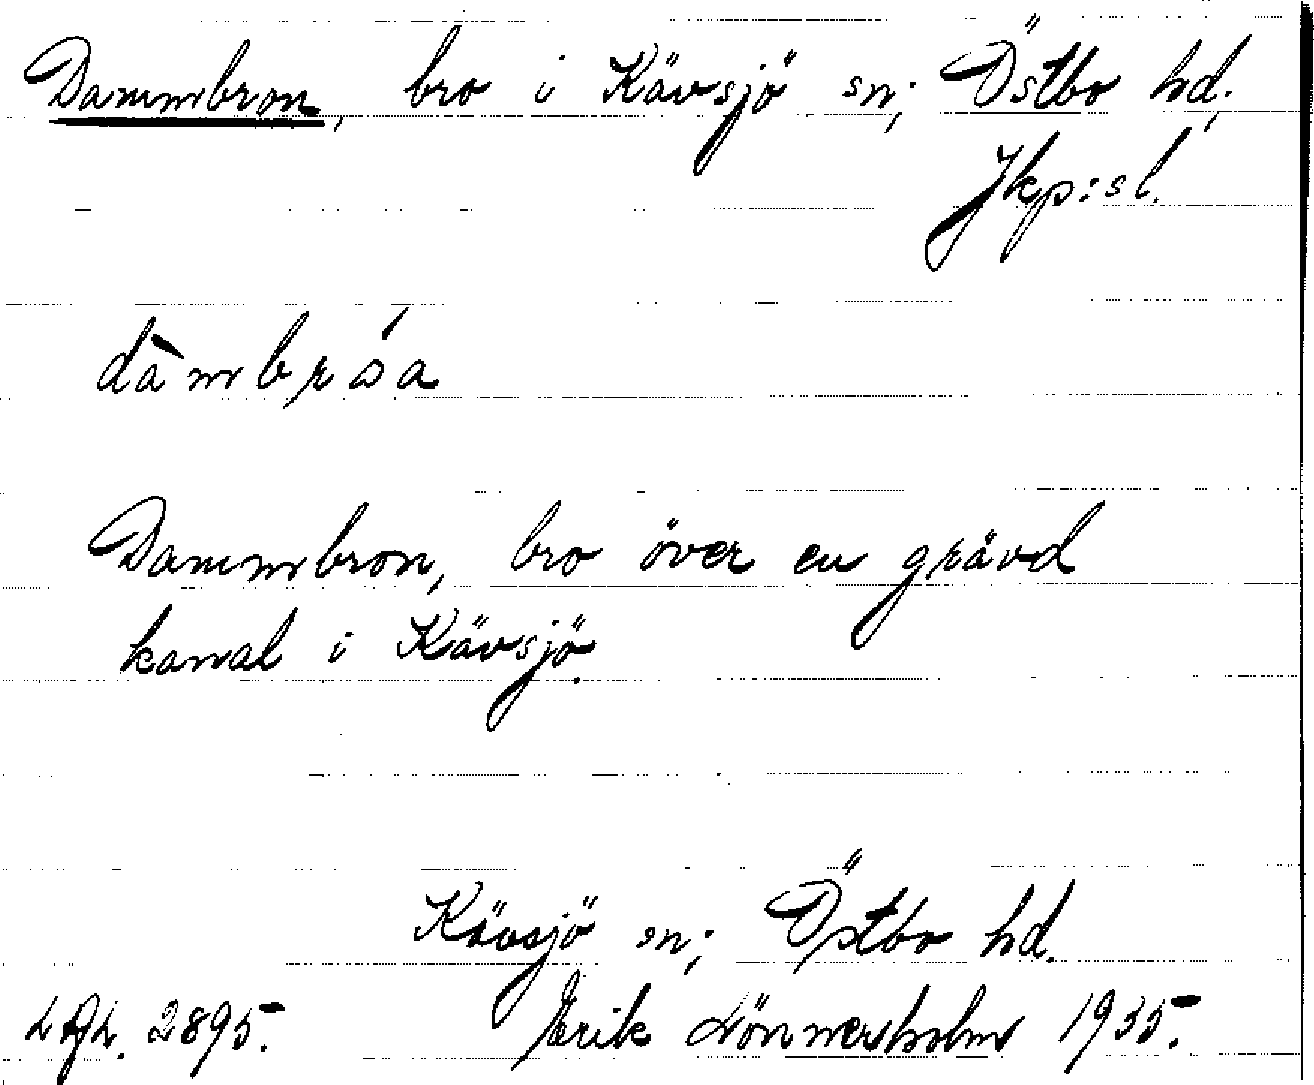 Dammbron, bro i Kävsjö sn; Östbo hd.
Jkp:s l.
dàmbróa
Dammbron, bro över en grävd
kanal i Kävsjö.
Kävsjö sn; Östbo hd.
2895. Erik Lönnerholm 1935.